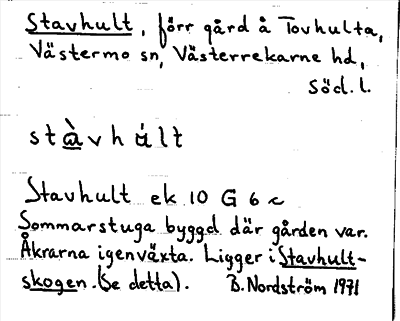 Stavhult, förr gård å Tovhulta,
Västermo sn, Västerrekarne hd,
Söd. l.
stàvhúlt
Stavhult ek 10 G 6 c
Sommarstuga byggd där gården var.
Åkrarna igenväxta. Ligger i Stavhult-
skogen. (Se detta). B. Nordström 1971